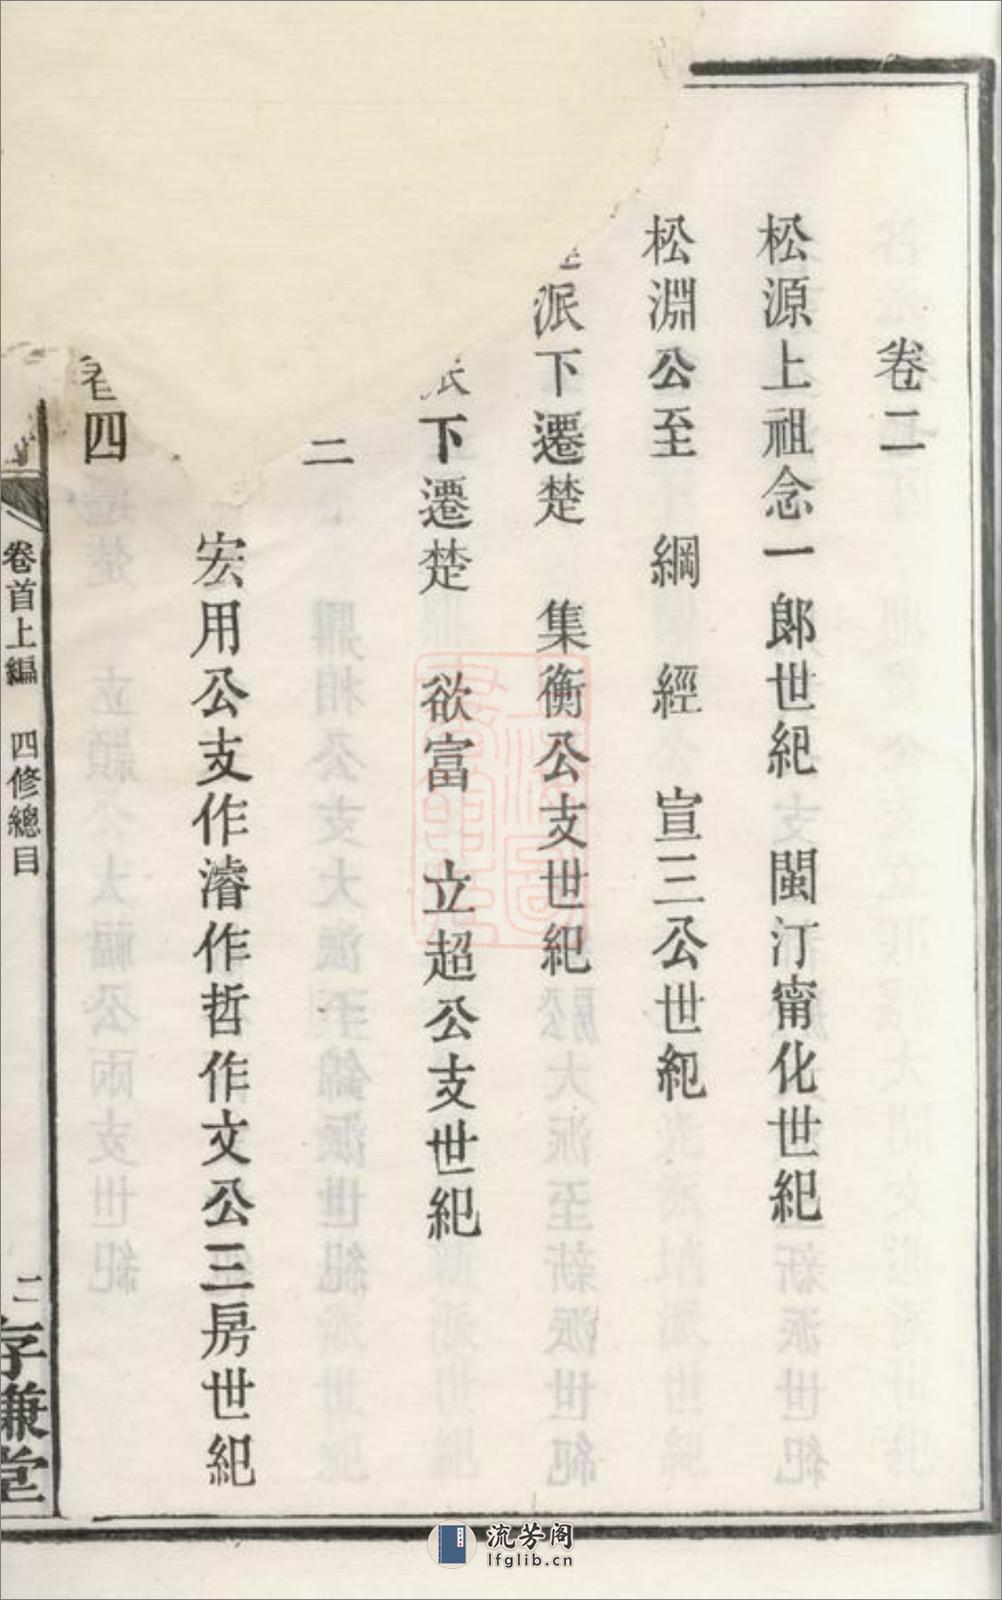 卷二
松源上祖念一郎世紀　閩汀甯化世紀
松淵公至　綱　經　宣三公世紀
派下遷楚　集衡公支世紀
下遷楚　欲富　立超公支世紀
二
宏用公支作濬作哲作文公三房世紀
卷四
卷首上編　四修總目
二
存謙堂
流芳阁
lfglib.cn